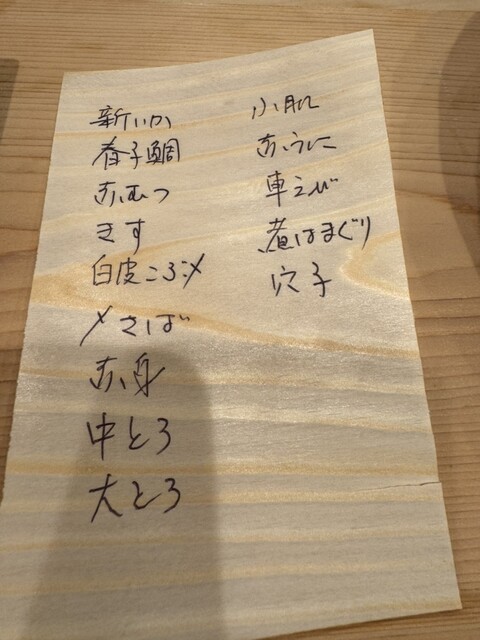 新いか
春子鯛
あかむつ
きす
白皮こぶ〆
〆さば
赤身
中とろ
大とろ
小肌
赤うに
車えび
煮はまぐり
穴子